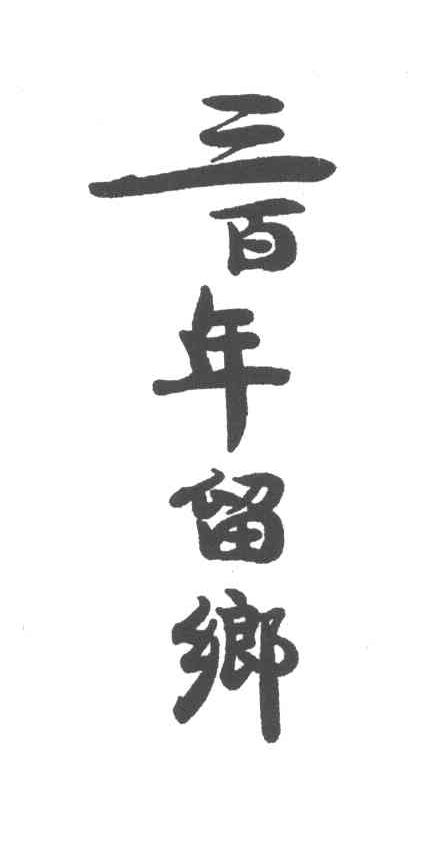 三百年留鄉